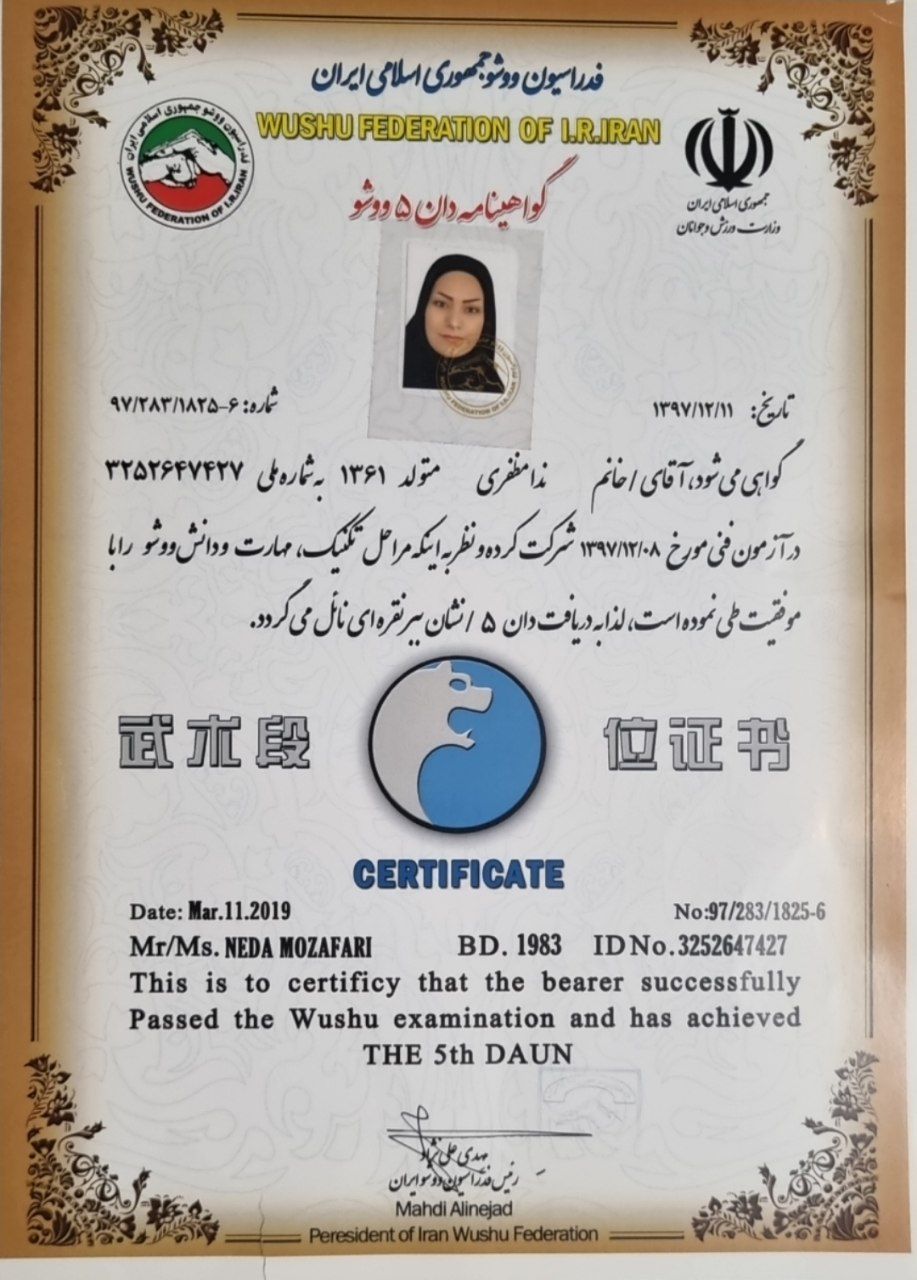 فدراسیون ووشو جمهوری اسلامی ایران
WUSHU FEDERATION OF I.R.IRAN
فدراسیون ووشو جمهوری اسلامی ایران
WUSHU FEDERATION OF I.R.IRAN
جمهوری اسلامی ایران
وزارت ورزش و جوانان
گواهینامه دان ۵ ووشو
WUSHU FEDERATION OF I.R.IRAN
تاریخ: ۱۳۹۷/۱۲/۱۱
شماره: ۹۷/۲۸۳/۱۸۲۵-۶
گواهی می شود، آقای / خانم ندا مظفری متولد ۱۳۶۱ به شماره ملی ۳۲۵۲۶۴۷۴۲۷
در آزمون فنی مورخ ۱۳۹۷/۱۲/۰۸ شرکت کرده و نظر به اینکه مراحل تکنیک، مهارت و دانش ووشو را با
موفقیت طی نموده است، لذا به دریافت دان ۵ / نشان ببر نقره ای نائل می گردد.
武术段位证书
CERTIFICATE
Date: Mar.11.2019 No:97/283/1825-6
Mr/Ms. NEDA MOZAFARI BD. 1983 IDNo.3252647427
This is to certificy that the bearer successfully
Passed the Wushu examination and has achieved
THE 5th DAUN
مهدی علی نژاد
رئیس فدراسیون ووشو ایران
Mahdi Alinejad
Peresident of Iran Wushu Federation